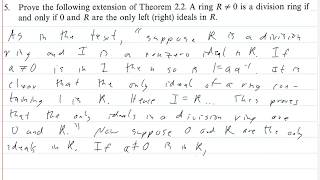 5. Prove the following extension of Theorem 2.2. A ring R ≠ 0 is a division ring if
and only if 0 and R are the only left (right) ideals in R.
As in the text, "suppose R is a division
ring and I is a nonzero ideal in R. If
a ≠ 0 is in I then so is 1 = aa⁻¹. It is
clear that the only ideal of a ring con-
taining 1 is R. Hence I = R... This proves
that the only ideals in a division ring are
0 and R." Now suppose 0 and R are the only
ideals in R. If a ≠ 0 is in R,